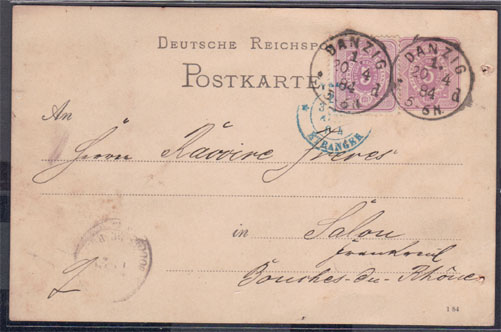 DEUTSCHE REICHSPO
POSTKARTE
DANZIG
1
20 4
84
5-6N. d
DANZIG
1
20 4
84
5-6N. d
ETRANGER
An
Herrn Ravoire frères
in Salon
frankreich
Bouches-du-Rhône
1 84